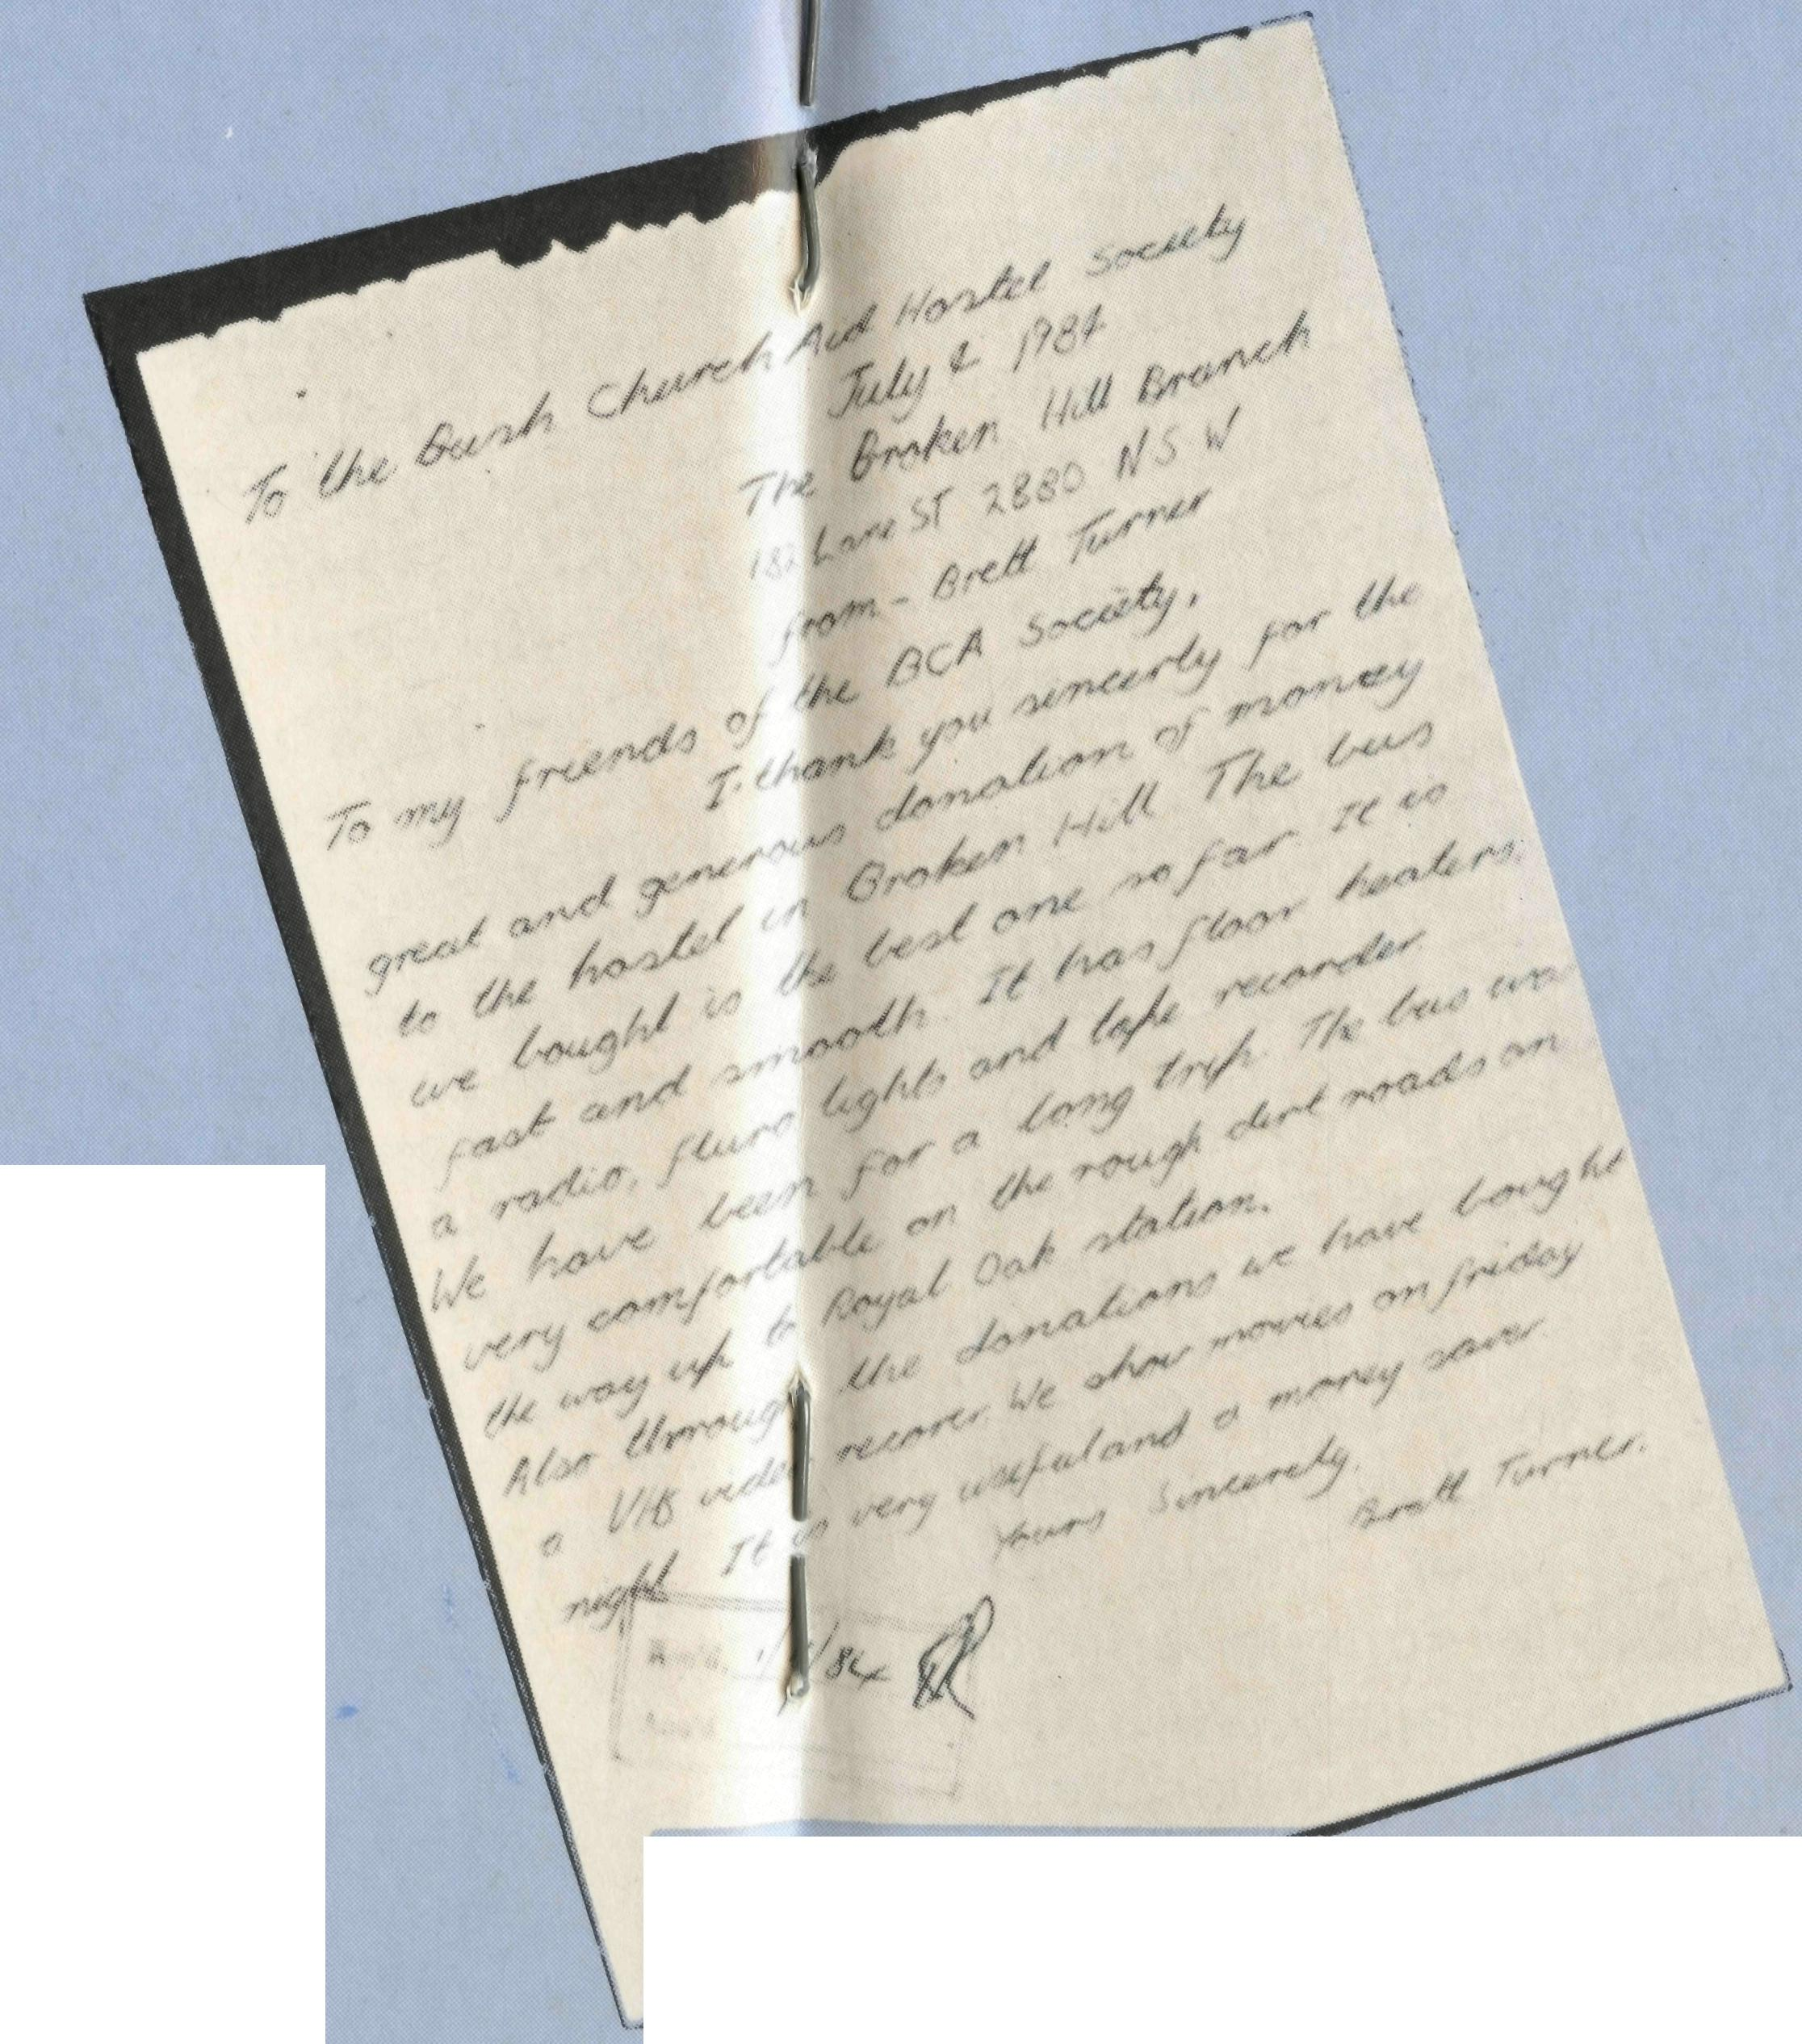 To the Bush Church Aid Hostel Society
July 2 1984
The Broken Hill Branch
182 Lane ST 2880 N S W
from - Brett Turner
To my friends of the BCA Society,
I thank you sincerly for the
great and generous donation of money
to the hostel in Broken Hill The bus
we bought is the best one so far. It is
fast and smooth. It has floor heaters,
a radio, fluro lights and tape recorder.
We have been for a long trip. The bus was
very comfortable on the rough dirt roads on
the way up to Royal Oak station.
Also through the donations we have bought
a VHS video recorer. We show movies on friday
night It is very useful and a money saver.
Yours Sincerely,
Brett Turner.
/84